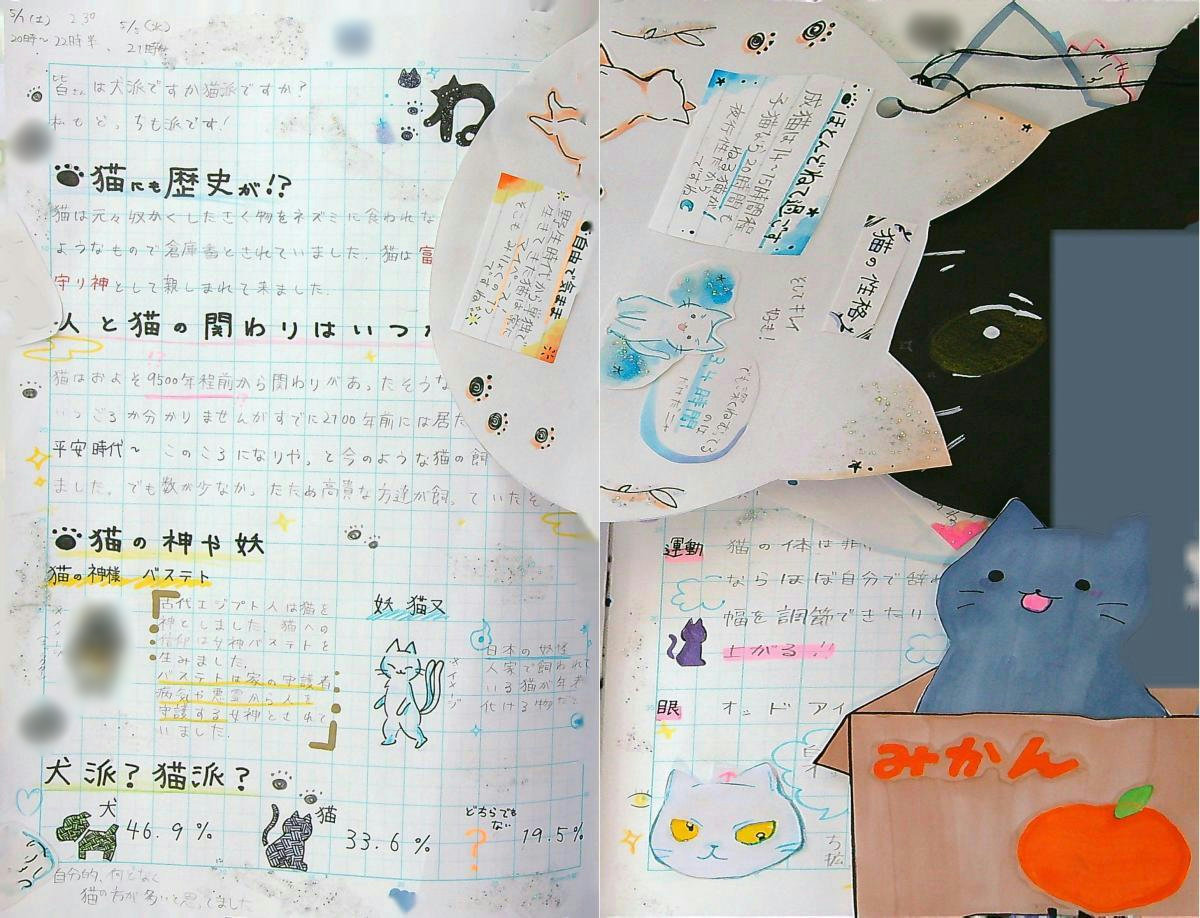 5/1(土) 2.30
20時〜22時半、
5/5(水)
21時
皆さんは犬派ですか猫派ですか?
私もどっちも派です!
猫にも歴史が!?
猫は元々収かくしたさく物をネズミに食われな
ようなもので倉庫番とされていました。猫は富
守り神として親しまれて来ました。
人と猫の関わりはいつ
猫はおよそ9500年程前から関わりがあったそうな
いつごろか分かりませんがすでに2100年前には居た
平安時代〜 このころになりやっと今のような猫の飼
ました。でも数が少なかったため高貴な方達が飼っていたそ
猫の神や妖
猫の神様 バステト
古代エジプト人は猫を
神としました。猫への
信仰は女神バステトを
生みました。
バステトは家の守護者
病気や悪霊から人
守護する女神とされて
いました。
妖 猫又
※イメージ
日本の妖怪
人家で飼われて
いる猫が年老
化ける物だと
犬派?猫派?
犬
46.9%
猫
33.6%
どちらでも
ない
?
19.5%
自分的、何となく
猫の方が多いと思ってました
猫の性格
ほとんどねて過です
成猫は14〜15時間程
子猫なら20時間を
ねる猫が!
夜行性だから
ですね
自由で気まま
野生時代から単独で
生きてきた猫は常に
マイペース
そこもみりょくの1つ
ですね
でも深くねむってる
のは
3,4時間
だけだ
運動
猫の体は非
ならほぼ自分で辞
幅を調節できたり
上がる!!
眼
オッドアイ
ち
拡
みかん